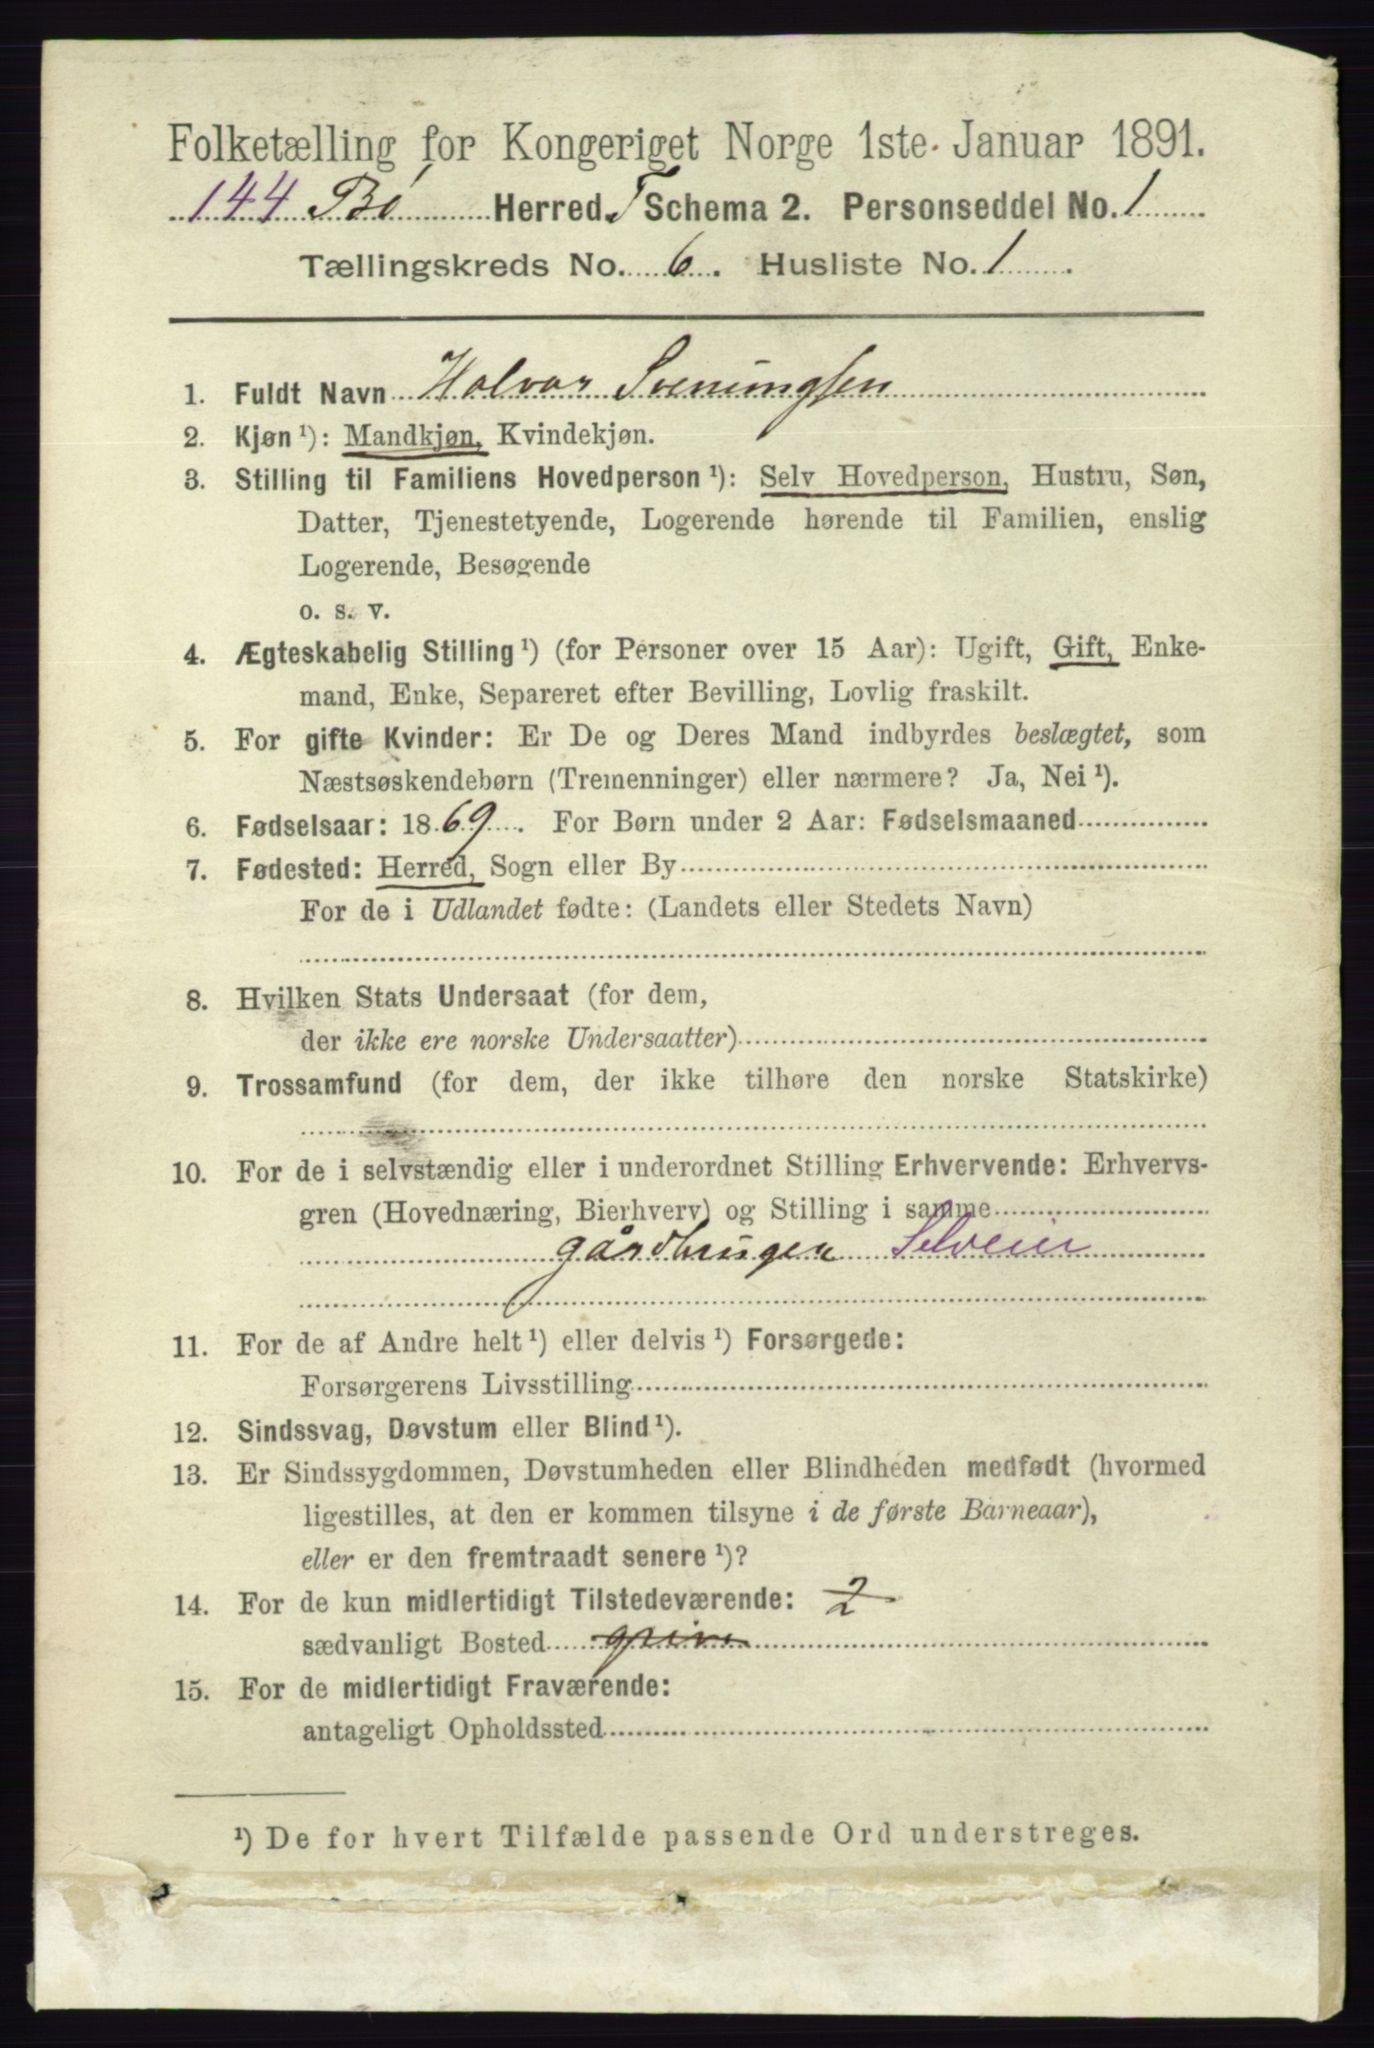 Folketælling for Kongeriget Norge 1ste Januar 1891.
144 Bø Herred. T Schema 2. Personseddel No. 1
Tællingskreds No. 6. Husliste No. 1.
1. Fuldt Navn Halvor Sveningsen
2. Kjøn ¹): Mandkjøn, Kvindekjøn.
3. Stilling til Familiens Hovedperson ¹): Selv Hovedperson, Hustru, Søn,
Datter, Tjenestetyende, Logerende hørende til Familien, enslig
Logerende, Besøgende
o. s. v.
4. Ægteskabelig Stilling ¹) (for Personer over 15 Aar): Ugift, Gift, Enke-
mand, Enke, Separeret efter Bevilling, Lovlig fraskilt.
5. For gifte Kvinder: Er De og Deres Mand indbyrdes beslægtet, som
Næstsøskendebørn (Tremenninger) eller nærmere? Ja, Nei ¹).
6. Fødselsaar: 1869. For Børn under 2 Aar: Fødselsmaaned
7. Fødested: Herred, Sogn eller By
For de i Udlandet fødte: (Landets eller Stedets Navn)
8. Hvilken Stats Undersaat (for dem,
der ikke ere norske Undersaatter)
9. Trossamfund (for dem, der ikke tilhøre den norske Statskirke)
10. For de i selvstændig eller i underordnet Stilling Erhvervende: Erhvervs-
gren (Hovednæring, Bierhverv) og Stilling i samme
gårdbruger Selveier
11. For de af Andre helt ¹) eller delvis ¹) Forsørgede:
Forsørgerens Livsstilling
12. Sindssvag, Døvstum eller Blind ¹).
13. Er Sindssygdommen, Døvstumheden eller Blindheden medfødt (hvormed
ligestilles, at den er kommen tilsyne i de første Barneaar),
eller er den fremtraadt senere ¹)?
14. For de kun midlertidigt Tilstedeværende: 2
sædvanligt Bosted
15. For de midlertidigt Fraværende:
antageligt Opholdssted
¹) De for hvert Tilfælde passende Ord understreges.